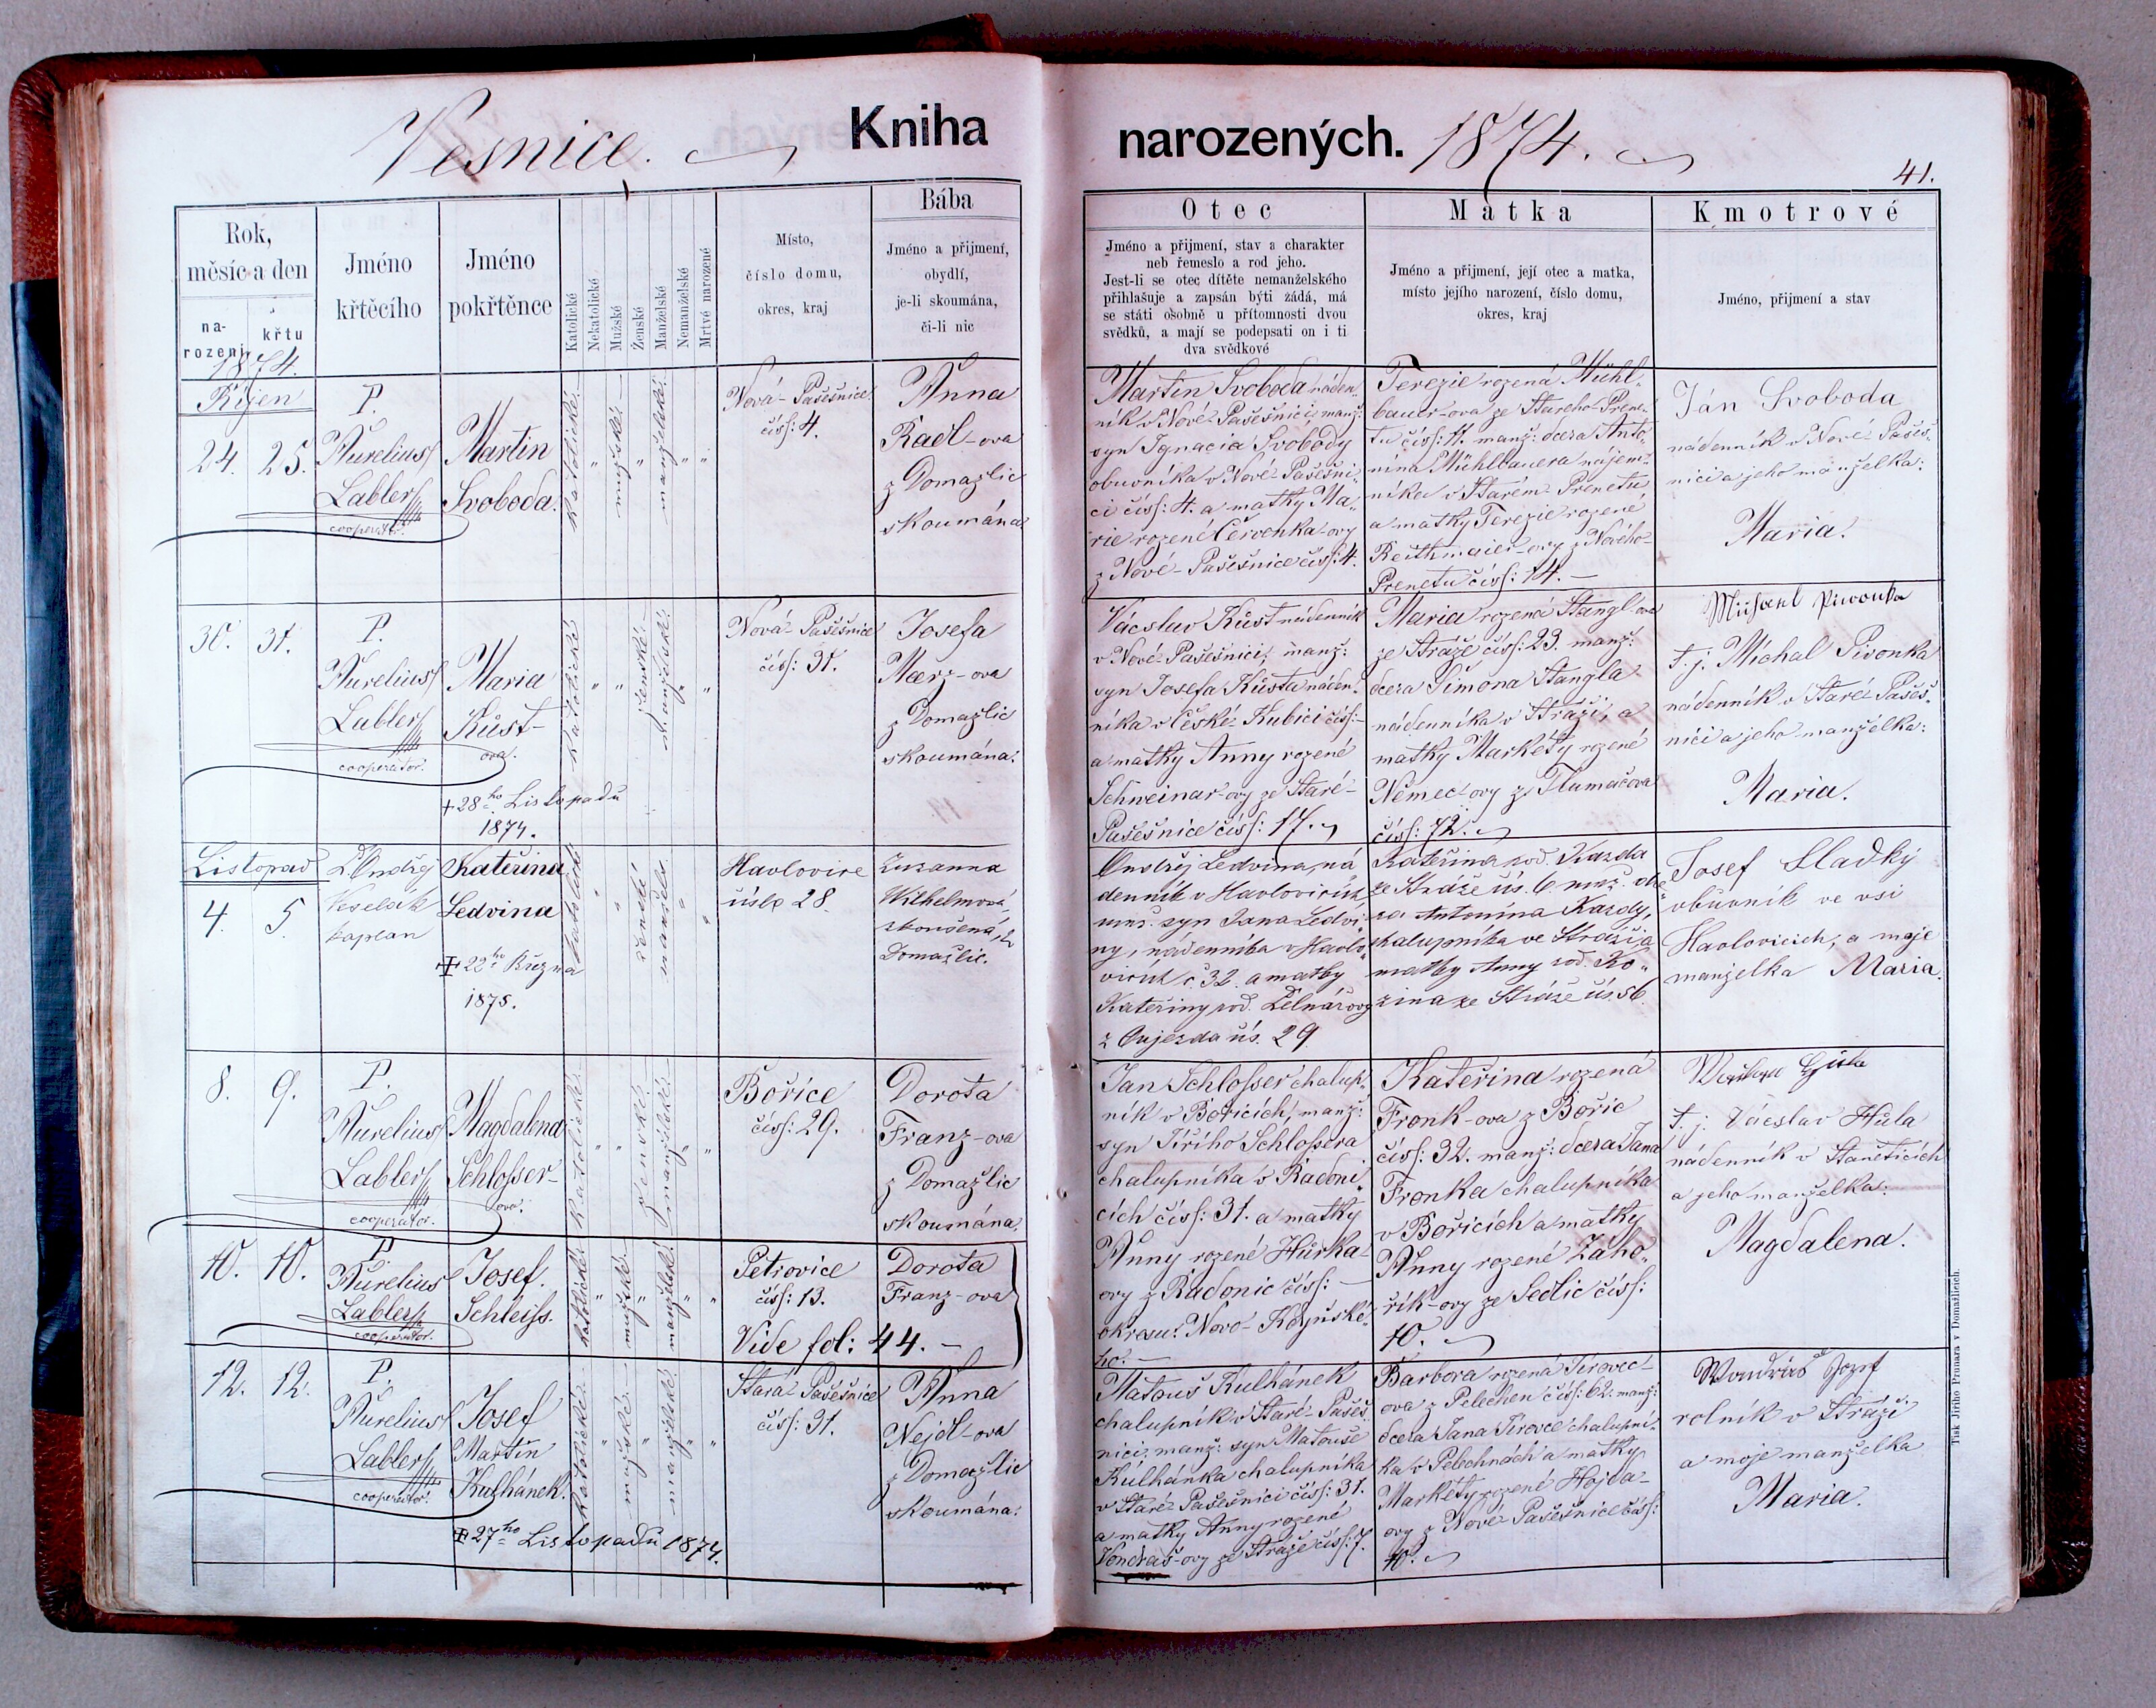 Vesnice. Kniha
narozených. 1874.
41.
Rok,
měsíc a den
na-
rození
křtu
Jméno
křtěcího
Jméno
pokřtěnce
Katolické
Nekatolické
Mužské
Ženské
Manželské
Nemanželské
Mrtvě narozené
Místo,
číslo domu,
okres, kraj
Bába
Jméno a přijmení,
obydlí,
je-li skoumána,
či-li nic
Otec
Jméno a přijmení, stav a charakter
neb řemeslo a rod jeho.
Jest-li se otec dítěte nemanželského
přihlašuje a zapsán býti žádá, má
se státi osobně u přítomnosti dvou
svědků, a mají se podepsati on i ti
dva svědkové
Matka
Jméno a přijmení, její otec a matka,
místo jejího narození, číslo domu,
okres, kraj
Kmotrové
Jméno, přijmení a stav
1874.
Říjen
24. 25.
P.
Aurelius
Labler
cooperator.
Martin
Svoboda.
katolické
mužské
manželské
Nová-Pasešnice
čísl: 4.
Anna
Radl-ova
z Domažlic
skoumána
Martin Svoboda náden-
ník v Nové-Pasešnici, manž:
syn Ignacia Svobody
obuvníka v Nové-Pasešni-
ci čísl: 4. a matky Ma-
rie rozené Červenka-ovy
z Nové-Pasešnice čísl: 4.
Terezie rozená Mühl-
bauer-ova ze Starého-Prene-
tu čísl: 4. manž: dcera Anto-
nína Mühlbauera nájem-
níka v Starém-Prenetu
a matky Terezie rozené
Reithmaier-ovy z Nového-
Prenetu čísl: 14.
Ján Svoboda
nádenník v Nové-Paseš-
nici a jeho manželka:
Maria.
30. 31.
P.
Aurelius
Labler
cooperator.
Maria
Kůst-
ova.
+28ho Listopadu
1874.
katolické
ženské
manželské
Nová-Pasešnice
čísl: 31.
Josefa
Maerz-ova
z Domažlic
skoumána.
Vácslav Kůst nádenník
v Nové-Pasešnici, manž:
syn Josefa Kůsta náden-
níka v České-Kubici čísl:
a matky Anny rozené
Schweinar-ovy ze Staré-
Pasešnice čísl: 17.
Maria rozená Stangl-ova
ze Stráže čísl: 23. manž:
dcera Šimona Stangla
nádenníka v Stráži, a
matky Markéty rozené
Němec-ovy z Tlumačova
čísl: 72.
Michael Piwonka
t. j. Michal Pivonka
nádenník v Staré-Paseš-
nici a jeho manželka:
Maria.
Listopad
4. 5.
P. Ondřej
Veselák
kaplan
Kateřina
Ledvina
+ 22ho Března
1875.
katolické
ženské
manžels.
Havlovice
číslo 28.
Zuzanna
Wilhelmová
zkoušená, z
Domažlic.
Ondřej Ledvina, ná-
denník v Havlovicích
mnž. syn Jana Ledvi-
ny, nádenníka v Havlo-
vicích č. 32. a matky
Kateřiny rod. Zelnářovy
z Oujezda čís. 29
Kateřina rod. Kazda
ze Stráže čís. 6 mnž. dce-
ra Antonína Kazdy,
chalupníka ve Stráži a
matky Anny rod. Ko-
zina ze Stráže čís. 56.
Josef Sladký
obuvník ve vsi
Havlovicích, a moje
manželka Maria.
8. 9.
P.
Aurelius
Labler
cooperator.
Magdalena
Schlosser-
ova.
katolické
ženské
manželské
Bořice
čísl: 29.
Dorota
Franz-ova
z Domažlic
skoumána.
Jan Schlosser chalup-
ník v Bořicích, manž:
syn Jiřího Schlossera
chalupníka v Radoni-
cích čísl: 31. a matky
Anny rozené Hůrka-
ovy z Radonic čísl:
okresu: Novo-Kdyňské-
ho.
Kateřina rozená
Fronk-ova z Bořic
čísl: 32. manž: dcera Jana
Fronka chalupníka
v Bořicích a matky
Anny rozené Záho-
řík-ovy ze Sedlic čísl:
10.
t. j. Vácslav Hůla
nádenník v Staněticích
a jeho manželka:
Magdalena.
10. 10.
P.
Aurelius
Labler
cooperator.
Josef
Schleiss.
katolické
mužské
manželské
Petrovice
čísl: 13.
Dorota
Franz-ova
Vide fol: 44.
12. 12.
P.
Aurelius
Labler
cooperator.
Josef
Martin
Kulhánek.
+ 27ho Listopadu 1874.
katolické
mužské
manželské
Stará-Pasešnice
čísl: 31.
Anna
Nejdl-ova
z Domažlic
skoumána.
Matouš Kulhánek
chalupník v Staré-Paseš-
nici, manž: syn Matouše
Kulhánka chalupníka
v Staré-Pasešnici čísl: 31.
a matky Anny rozené
Vondraš-ovy ze Stráže čísl: 7.
Barbora rozená Jírovec-
ova z Pelechen čísl: 62. manž:
dcera Jana Jírovce chalupní-
ka v Pelechnách a matky
Markéty rozené Hojda-
ovy z Nové-Pasešnice čísl:
10.
Wondráš Jozef
rolník v Stráži
a moje manželka
Maria.
Tisk Jiřího Prunara v Domažlicích.